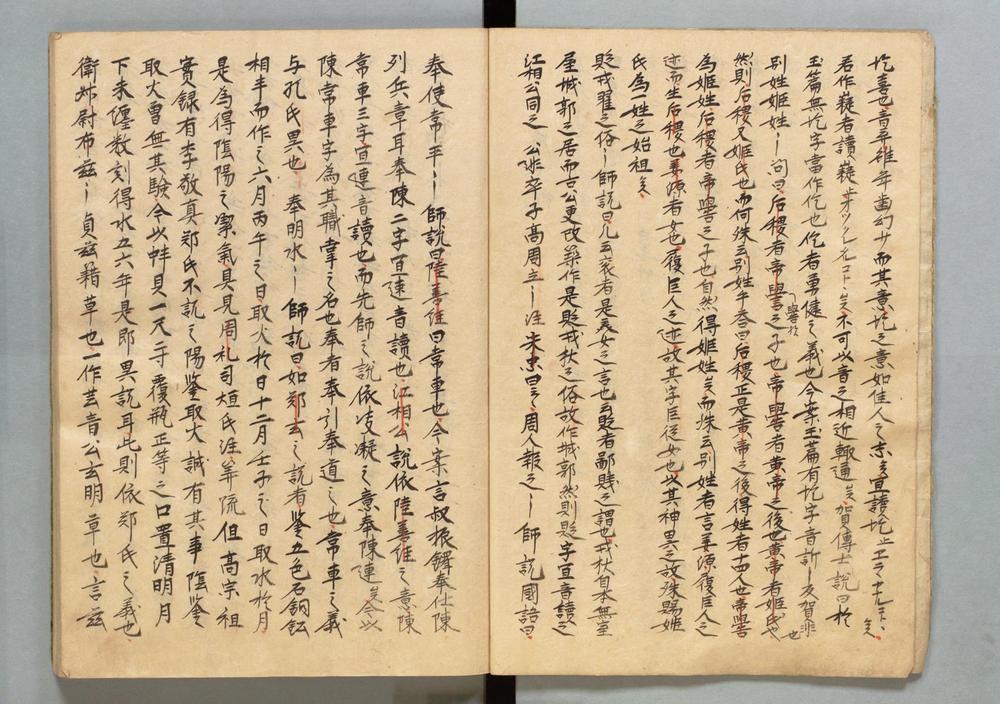 喜也音平碓年齒幻少而其意圪之意如佳人之志矣宜讀圪
若作嶷者讀嶷 不可以音之相近輙通矣賀博士說曰於
玉篇無圪字當作仡也仡者勇健之義也今案玉篇有圪字音訢友賀非也
別姓姬姓〻問曰后稷者帝嚳之子也帝嚳者黄帝之後也黄帝者姬氏也
然則后稷又姬氏也而何殊云別姓乎答曰后稷正是黄帝之後得姓者十四人也帝嚳
為姬姓后稷者帝嚳之子也自然得姬姓矣而殊云別姓者言姜源履巨人之
迹而生后稷也姜源者女也履巨人之迹故其字臣從女也以其神異之故殊賜姬
氏為一姓之始祖矣
貶戎翟之俗〻師說曰凡云者是美之言也云貶者鄙賤之謂也戎狄自本無室
屋城郭之居而古公更改築作是貶戎狄之俗故作城郭然則貶字宜音讀之
江相公同之 公非卒子高圉立〻注朱忠曰云周人報之〻師說國語曰
奉使常平〻師說曰陸善經曰常車也今案言叔振鐸奉仕陳
列兵章耳奉陳二字宜連音讀也江相公說依陸善經之意陳
常車三字宜連音讀也而先師之說依凌凝之意奉陳連矣今以
陳常車字為其職掌之名也奉者奉引奉道之也常車之義
与孔氏異也 奉明水〻師說曰如鄭玄之說者鉴五色石銅鈆
相半而作之六月丙午之日取火於日十二月壬子之日取水於月
是為得陰陽之潔氣具見周礼司烜氏注并疏但高宗祖
實録有李敬真鄭氏不說之陽鉴取火誠有其事陰鉴
取火曽無其驗今以蚌貝一尺二寸覆瓶正等之口置清明月
下未僅数刻得水五六年是即異說耳此則依鄭氏之義也
衛姊尉布茲〻貞茲籍草也一作芸音公玄明草也言茲